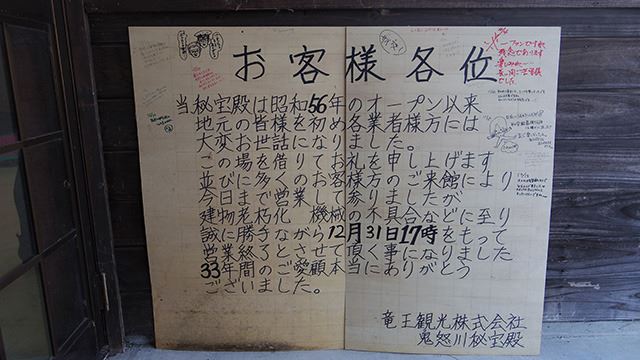 お客様各位
当秘宝殿は昭和56年のオープン以来
地元の皆様を初め各業者様方には
大変お世話になりました。
この場を借りてお礼を申し上げます
並びに多くのお客様方のご来館により
今日まで営業して参りましたが
建物老朽化 機械の不具合などに至り
誠に勝手ながら12月31日17時をもって
営業終了とさせて頂く事になりました
33年間のご愛顧本当にありがとう
ございました。
竜王観光株式会社
鬼怒川秘宝殿